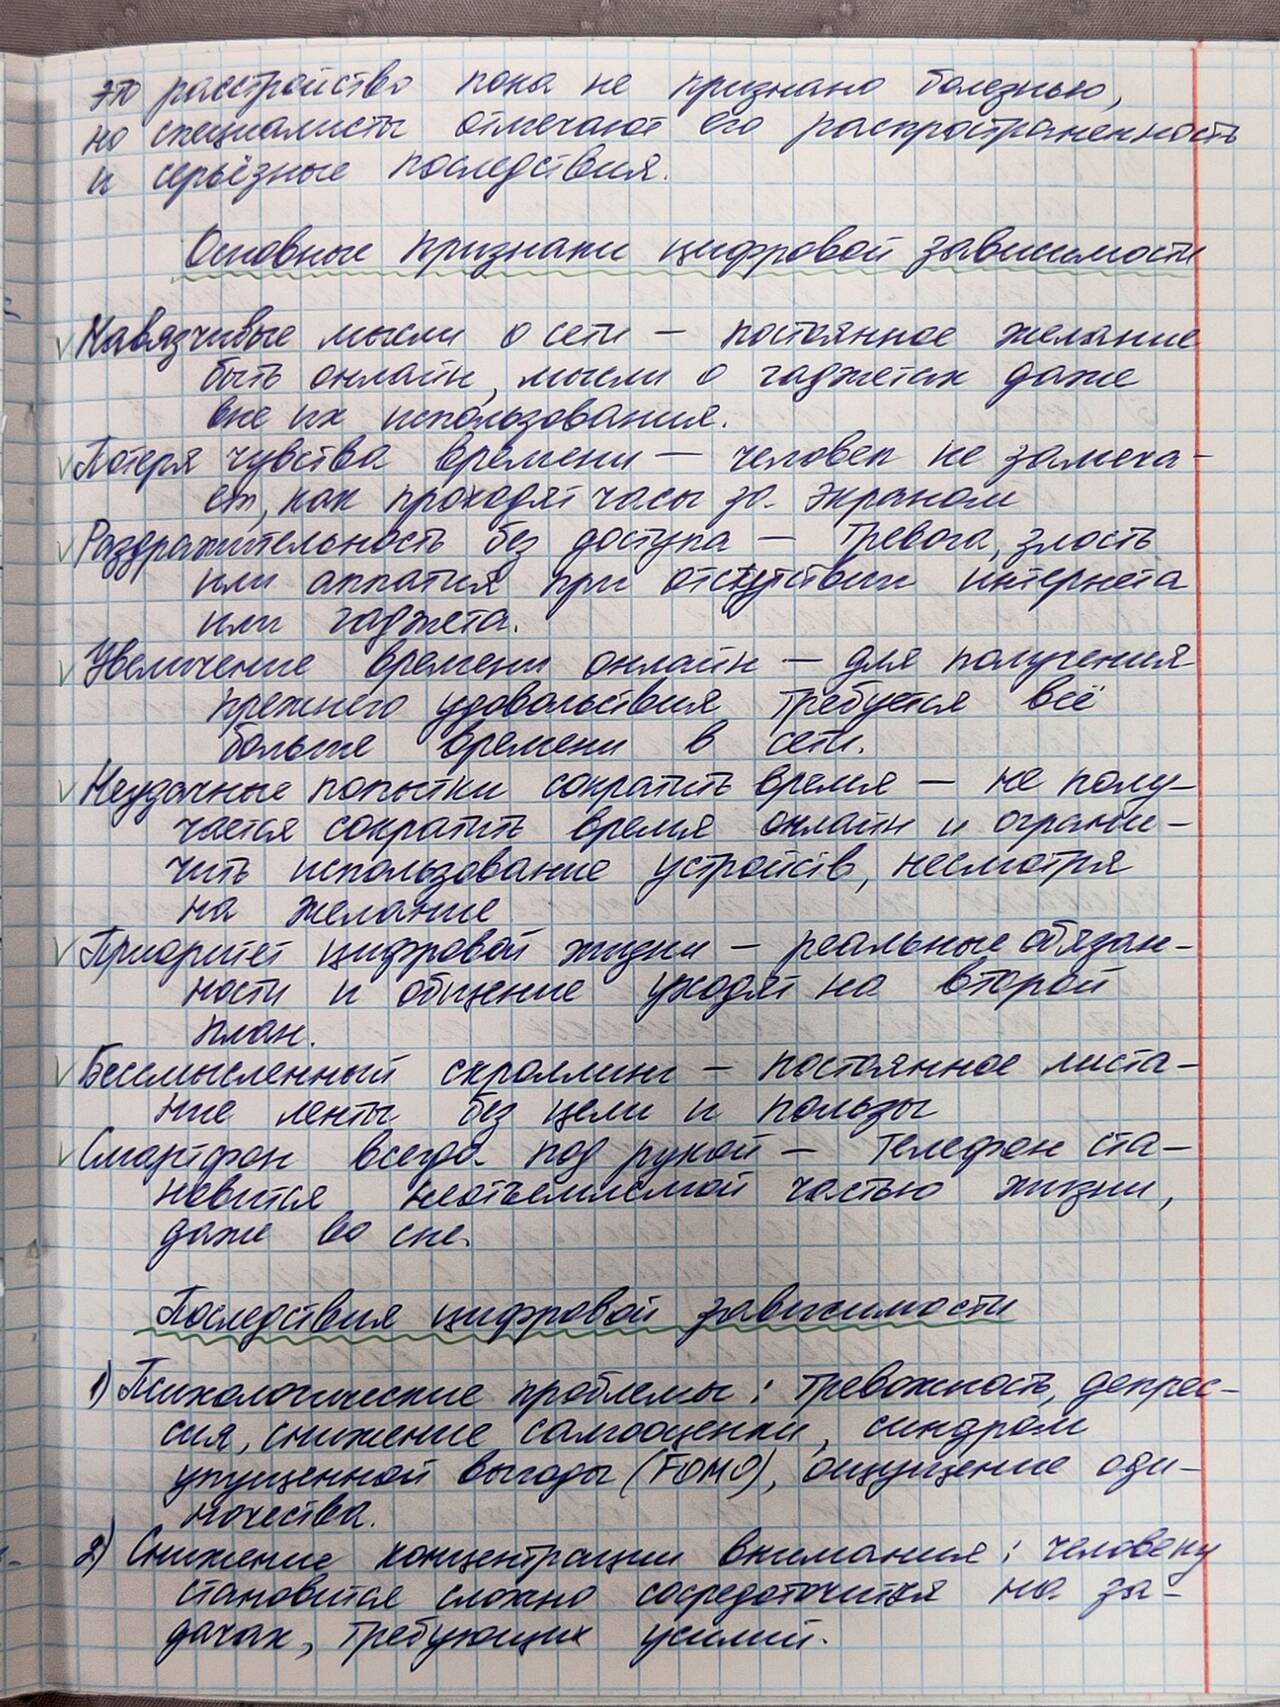 это расстройство пока не признано болезнью,
но специалисты отмечают его распространенность
и серьёзные последствия.
Основные признаки цифровой зависимости
Навязчивые мысли о сети – постоянное желание
быть онлайн, мысли о гаджетах даже
вне их использования.
Потеря чувства времени – человек не замеча-
ет, как проходят часы за экраном
Раздражительность без доступа – тревога, злость
или аппатия при отсутствии интернета
или гаджета.
Увеличение времени онлайн – для получения
прежнего удовольствия требуется всё
больше времени в сети.
Неудачные попытки сократить время – не полу-
чается сократить время онлайн и ограни-
чить использование устройств, несмотря
на желание
Приоритет цифровой жизни – реальные обязан-
ности и общение уходят на второй
план.
Бессмысленный скроллинг – постоянное листа-
ние ленты без цели и пользы
Смартфон всегда под рукой – телефон ста-
новится неотъемлемой частью жизни,
даже во сне.
Последствия цифровой зависимости
1) Психологические проблемы: тревожность, депрес-
сия, снижение самооценки, синдром
упущенной выгоды (FOMO), ощущение оди-
ночества.
2) Снижение концентрации внимания: человеку
становится сложно сосредоточится на за-
дачах, требующих усилий.